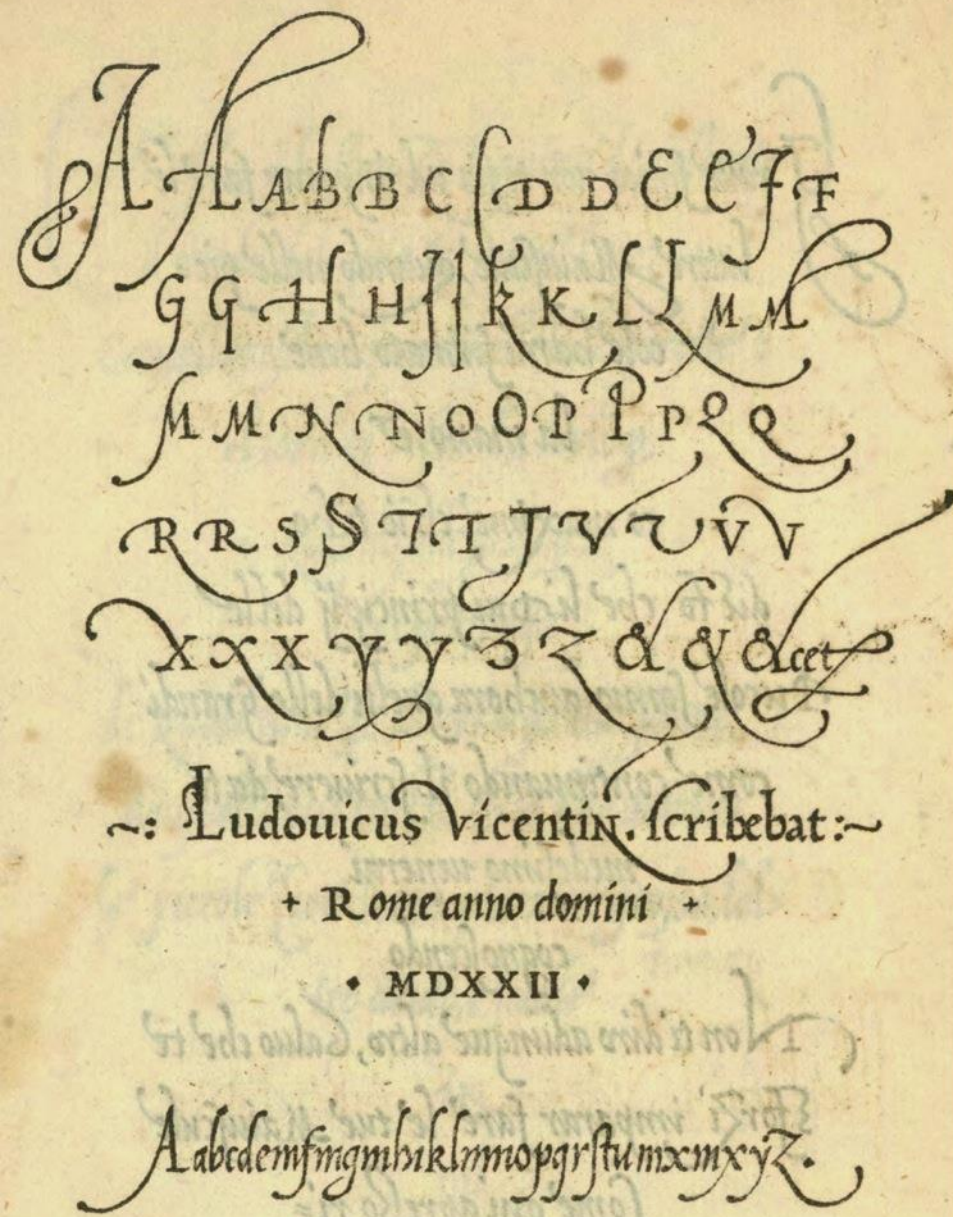 A A A B B C C D D E E F F
G G H H I I K K L L M M
M M N N O O P P P Q Q
R R S S T T T V V V V
X X X Y Y Z Z & & &cet
~: Ludouicus Vicentin. ſcribebat:~
+ Rome anno domini +
• MDXXII •
Aabcdemfmgmhiklmnopqrſtumxmxyz.